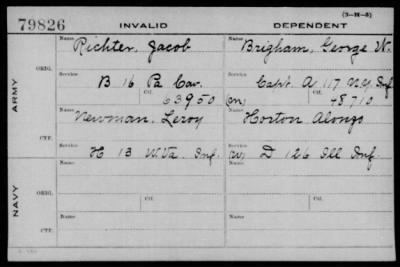 (3-H-8)
79826 INVALID DEPENDENT
Name Name
Richter, Jacob Brigham, George W.
ARMY
ORIG.
Service Service
B 16 Pa Cav. Capt. A 117 N.Y. Inf
Ctf. Ctf.
63950 (m) 48710
Name Name
Newman, Leroy Horton Alonzo
CTF.
Service Service
H 13 W.Va. Inf. (W) D 126 Ill Inf.
NAVY
Name Name
ORIG.
Service Ctf. Service Ctf.
Name Name
CTF.